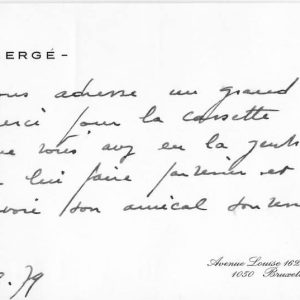 ERGÉ -
ous adresse un grand
erci pour la cassette
ue vous avez eu la gent
lui faire parvenir et
voie son amical souven
Avenue Louise 162
1050 Bruxel
. 79